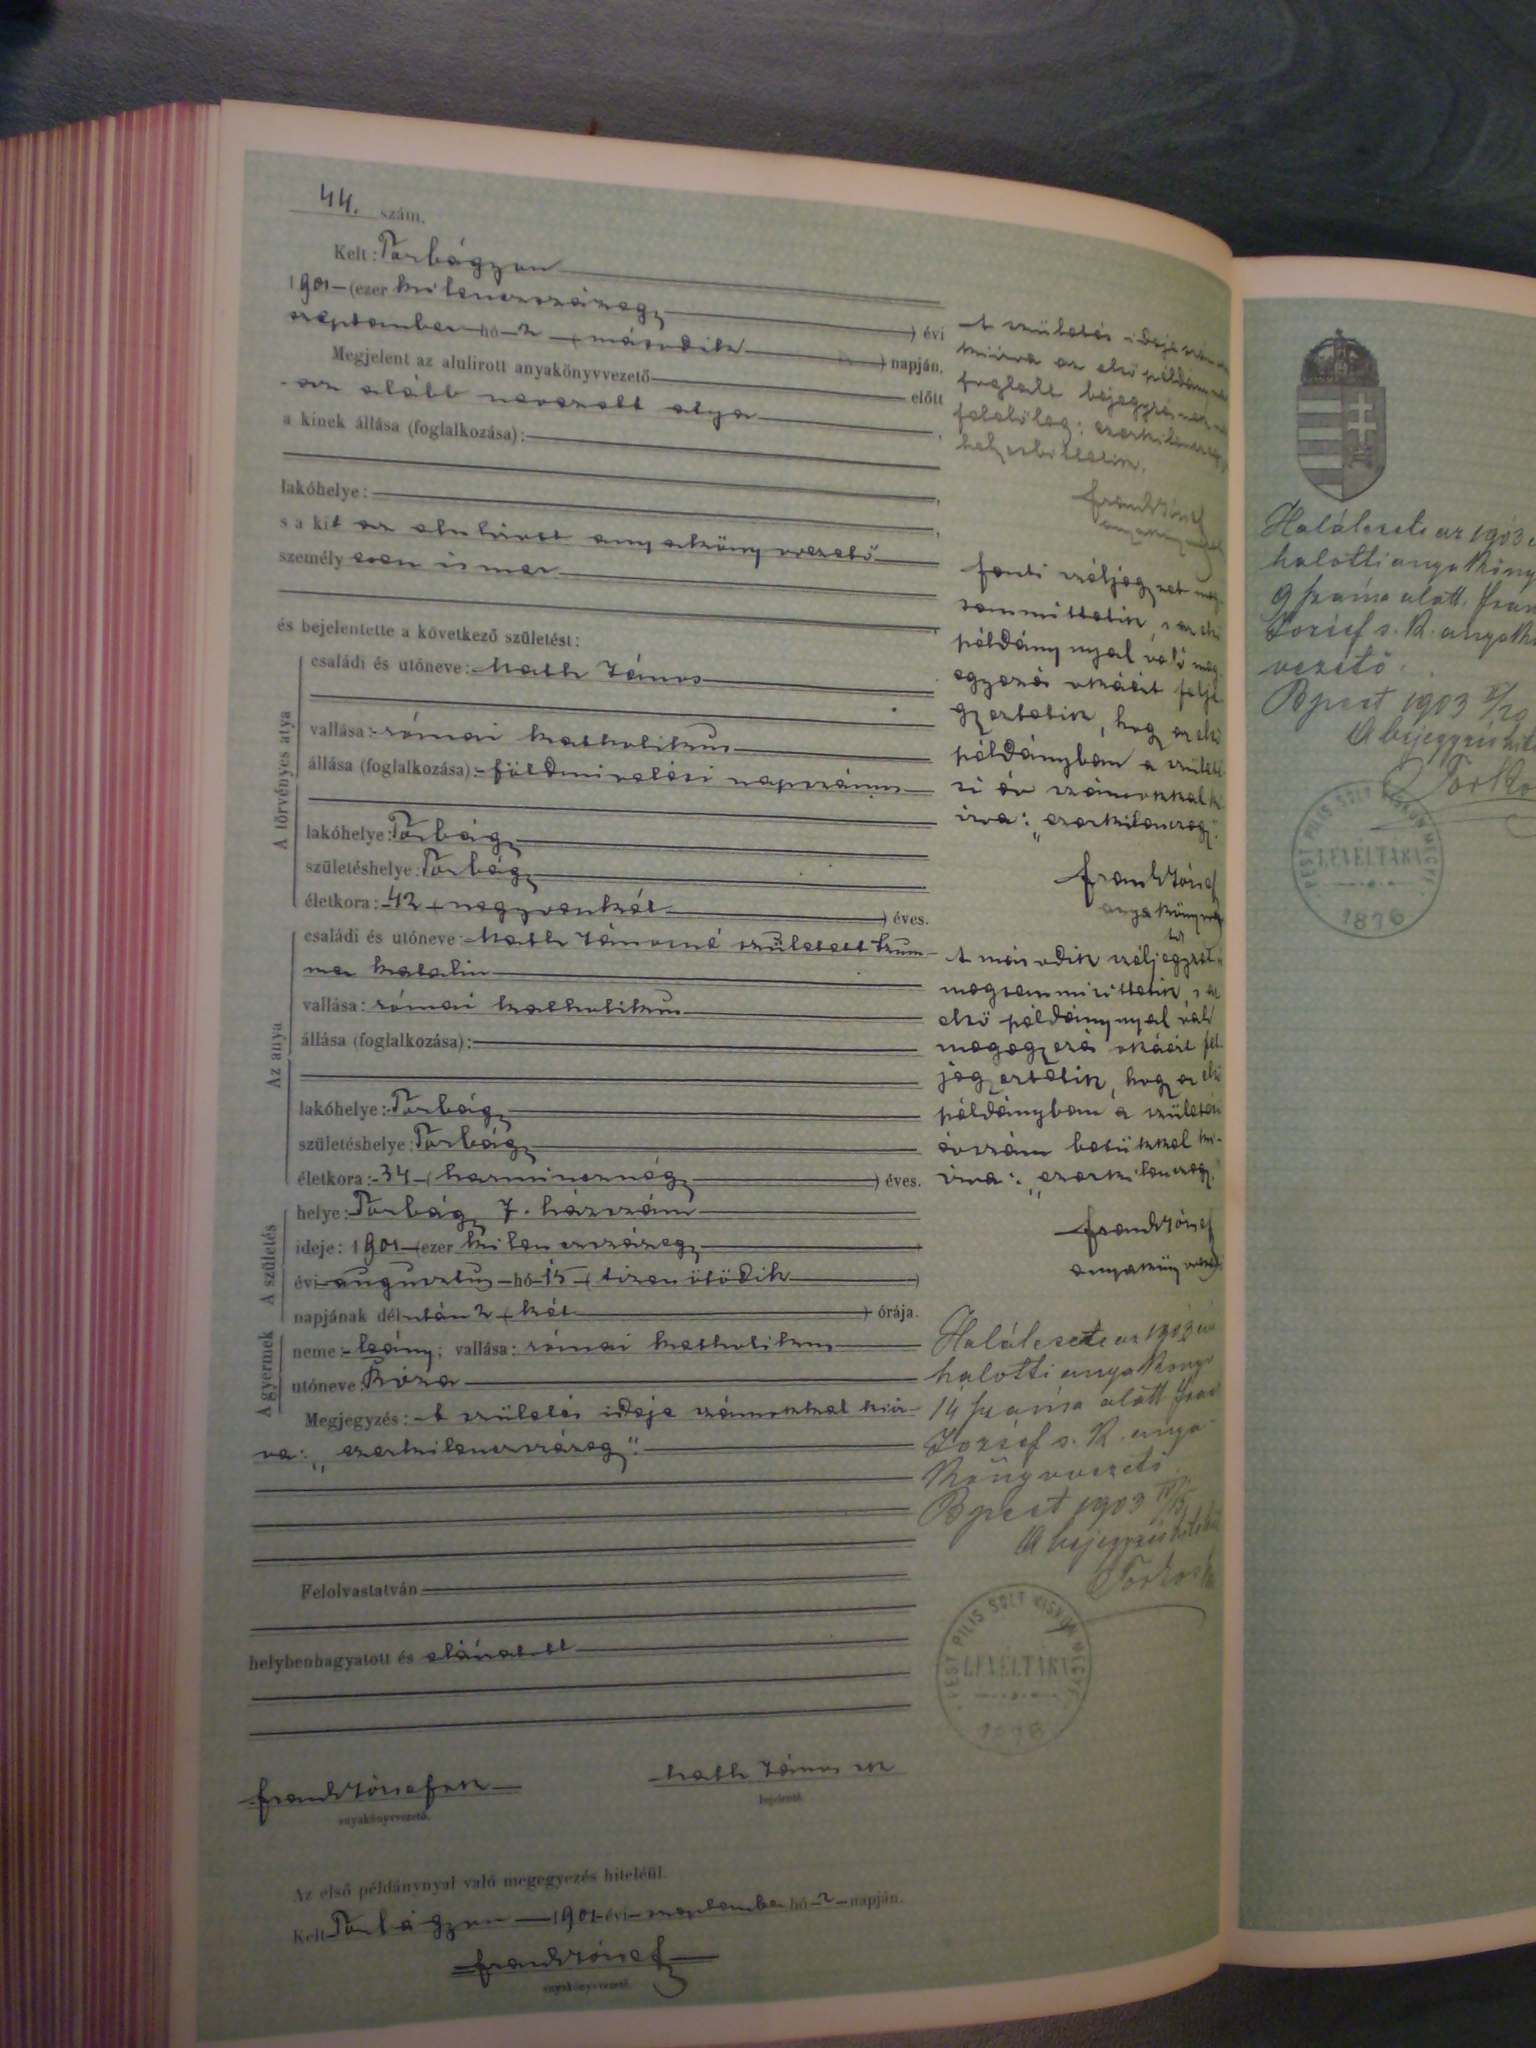 44. szám.
Kelt: Torbágyon
1901 (ezer kilenczszázegy) évi
szeptember hó 2 (második) napján.
Megjelent az alulirott anyakönyvvezető előtt
az alább nevezett atya,
a kinek állása (foglalkozása):
lakóhelye:
s a kit az alulirott anyakönyvvezető
személyesen ismer
és bejelentette a következő születést:
A törvényes atya
családi és utóneve: János
vallása: római katholikus
állása (foglalkozása): földmivelési napszámos
lakóhelye: Torbágy
születéshelye: Torbágy
életkora: 42 (negyvenkét) éves.
Az anya
családi és utóneve: Jánosné született
Katalin
vallása: római katholikus
állása (foglalkozása):
lakóhelye: Torbágy
születéshelye: Torbágy
életkora: 34 (harmincznégy) éves.
A születés
helye: Torbágy 7. házszám
ideje: 1901 (ezer kilenczszázegy
évi augusztus hó 15 (tizenötödik)
napjának délután 2 (két) órája.
A gyermek
neme: leány; vallása: római katholikus
utóneve: Róza
Megjegyzés: A születés ideje számokkal kiir-
va: „ezerkilenczszázegy".
Felolvastatván
helybenhagyatott és aláiratott
Frank József sk
anyakönyvvezető.
János sk
bejelentő.
Az első példánynyal való megegyezés hiteléül.
Kelt Torbágyon 1901 évi szeptember hó 2 napján.
Frank József
anyakönyvvezető.
A születés ideje
kiirva az első példány
foglalt bejegyzésnek
felelőleg:
helyesbittetik.
Frank József
fenti széljegyzet meg-
semmisittetik, s az első
példánynyal való meg
egyezés okáért felje
gyeztetik, hogy az első
példányban a születé
si év számokkal ki
irva: „ezerkilenczegy".
Frank József
anyakönyvvezető
A második széljegyzet
megsemmisittetik, s az
első példánynyal való
megegyezés okáért fel
jegyeztetik, hogy az első
példányban a születési
évszám betükkel ki-
irva: „ezerkilenczegy."
Frank József
anyakönyvvezető
Halálesete az 1903 évi
halotti anyakönyv
14 száma alatt Frank
József s. k. anya-
könyvvezető.
Bpest 1903
A bejegyzés hiteléül
PEST PILIS SOLT KISKUN MEGYE
LEVÉLTÁRA
1876
Halálesete az 1903
halotti anyaköny
9 száma alatt. Fran
József s. k. anyakö
vezető.
Bpest 1903 /20
A bejegyzés hite
PEST PILIS SOLT KISKUN MEGYE
LEVÉLTÁRA
1876